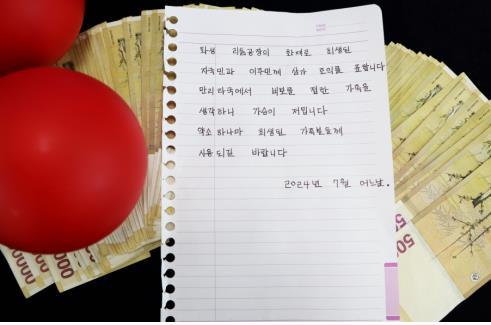 화성 리튬공장의 화재로 희생된
자국민과 이주민께 삼가 조의를 표합니다
만리타국에서 비보를 접한 가족을
생각하니 가슴이 저밉니다
약소하나마 희생된 가족분들께
사용되길 바랍니다
2024년 7월 어느날.
0000
000
500